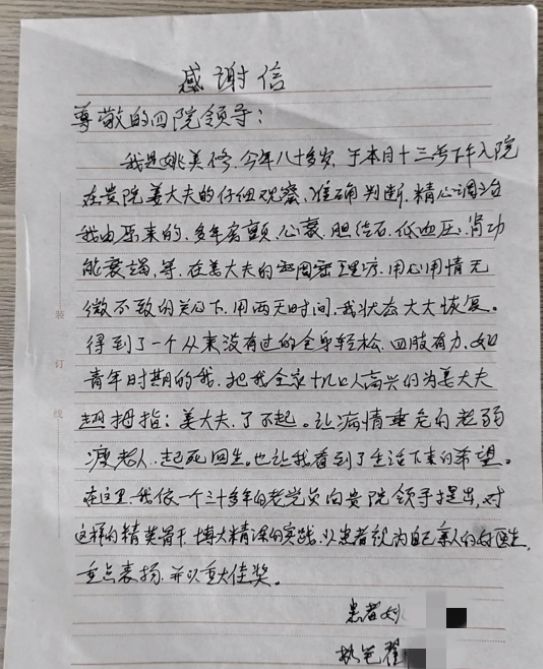 感谢信
尊敬的四院领导：
我是姚美修，今年八十多岁，于本月十三号下午入院
在贵院姜大夫的仔细观察，准确判断，精心调治
我由原来的，多年房颤，心衰，胆结石，低血压，肾功
能衰竭，等，在姜大夫的周密理疗，用心用情无
微不致的关心下，用两天时间，我状态大大恢复。
得到了一个从来没有过的全身轻松，四肢有力，如
青年时期的我，把我全家十几口人高兴的为姜大夫
翘拇指：姜大夫，了不起。让病情垂危的老弱
瘦老人，起死回生。也让我看到了生活下来的希望。
在这里，我依一个三十多年的老党员向贵院领导提出，对
这样的精英骨干，博大精深的实践，以患者视为自己亲人的好医生，
重点表扬，并以重大佳奖。
患者姚
执笔翟
装
订
线